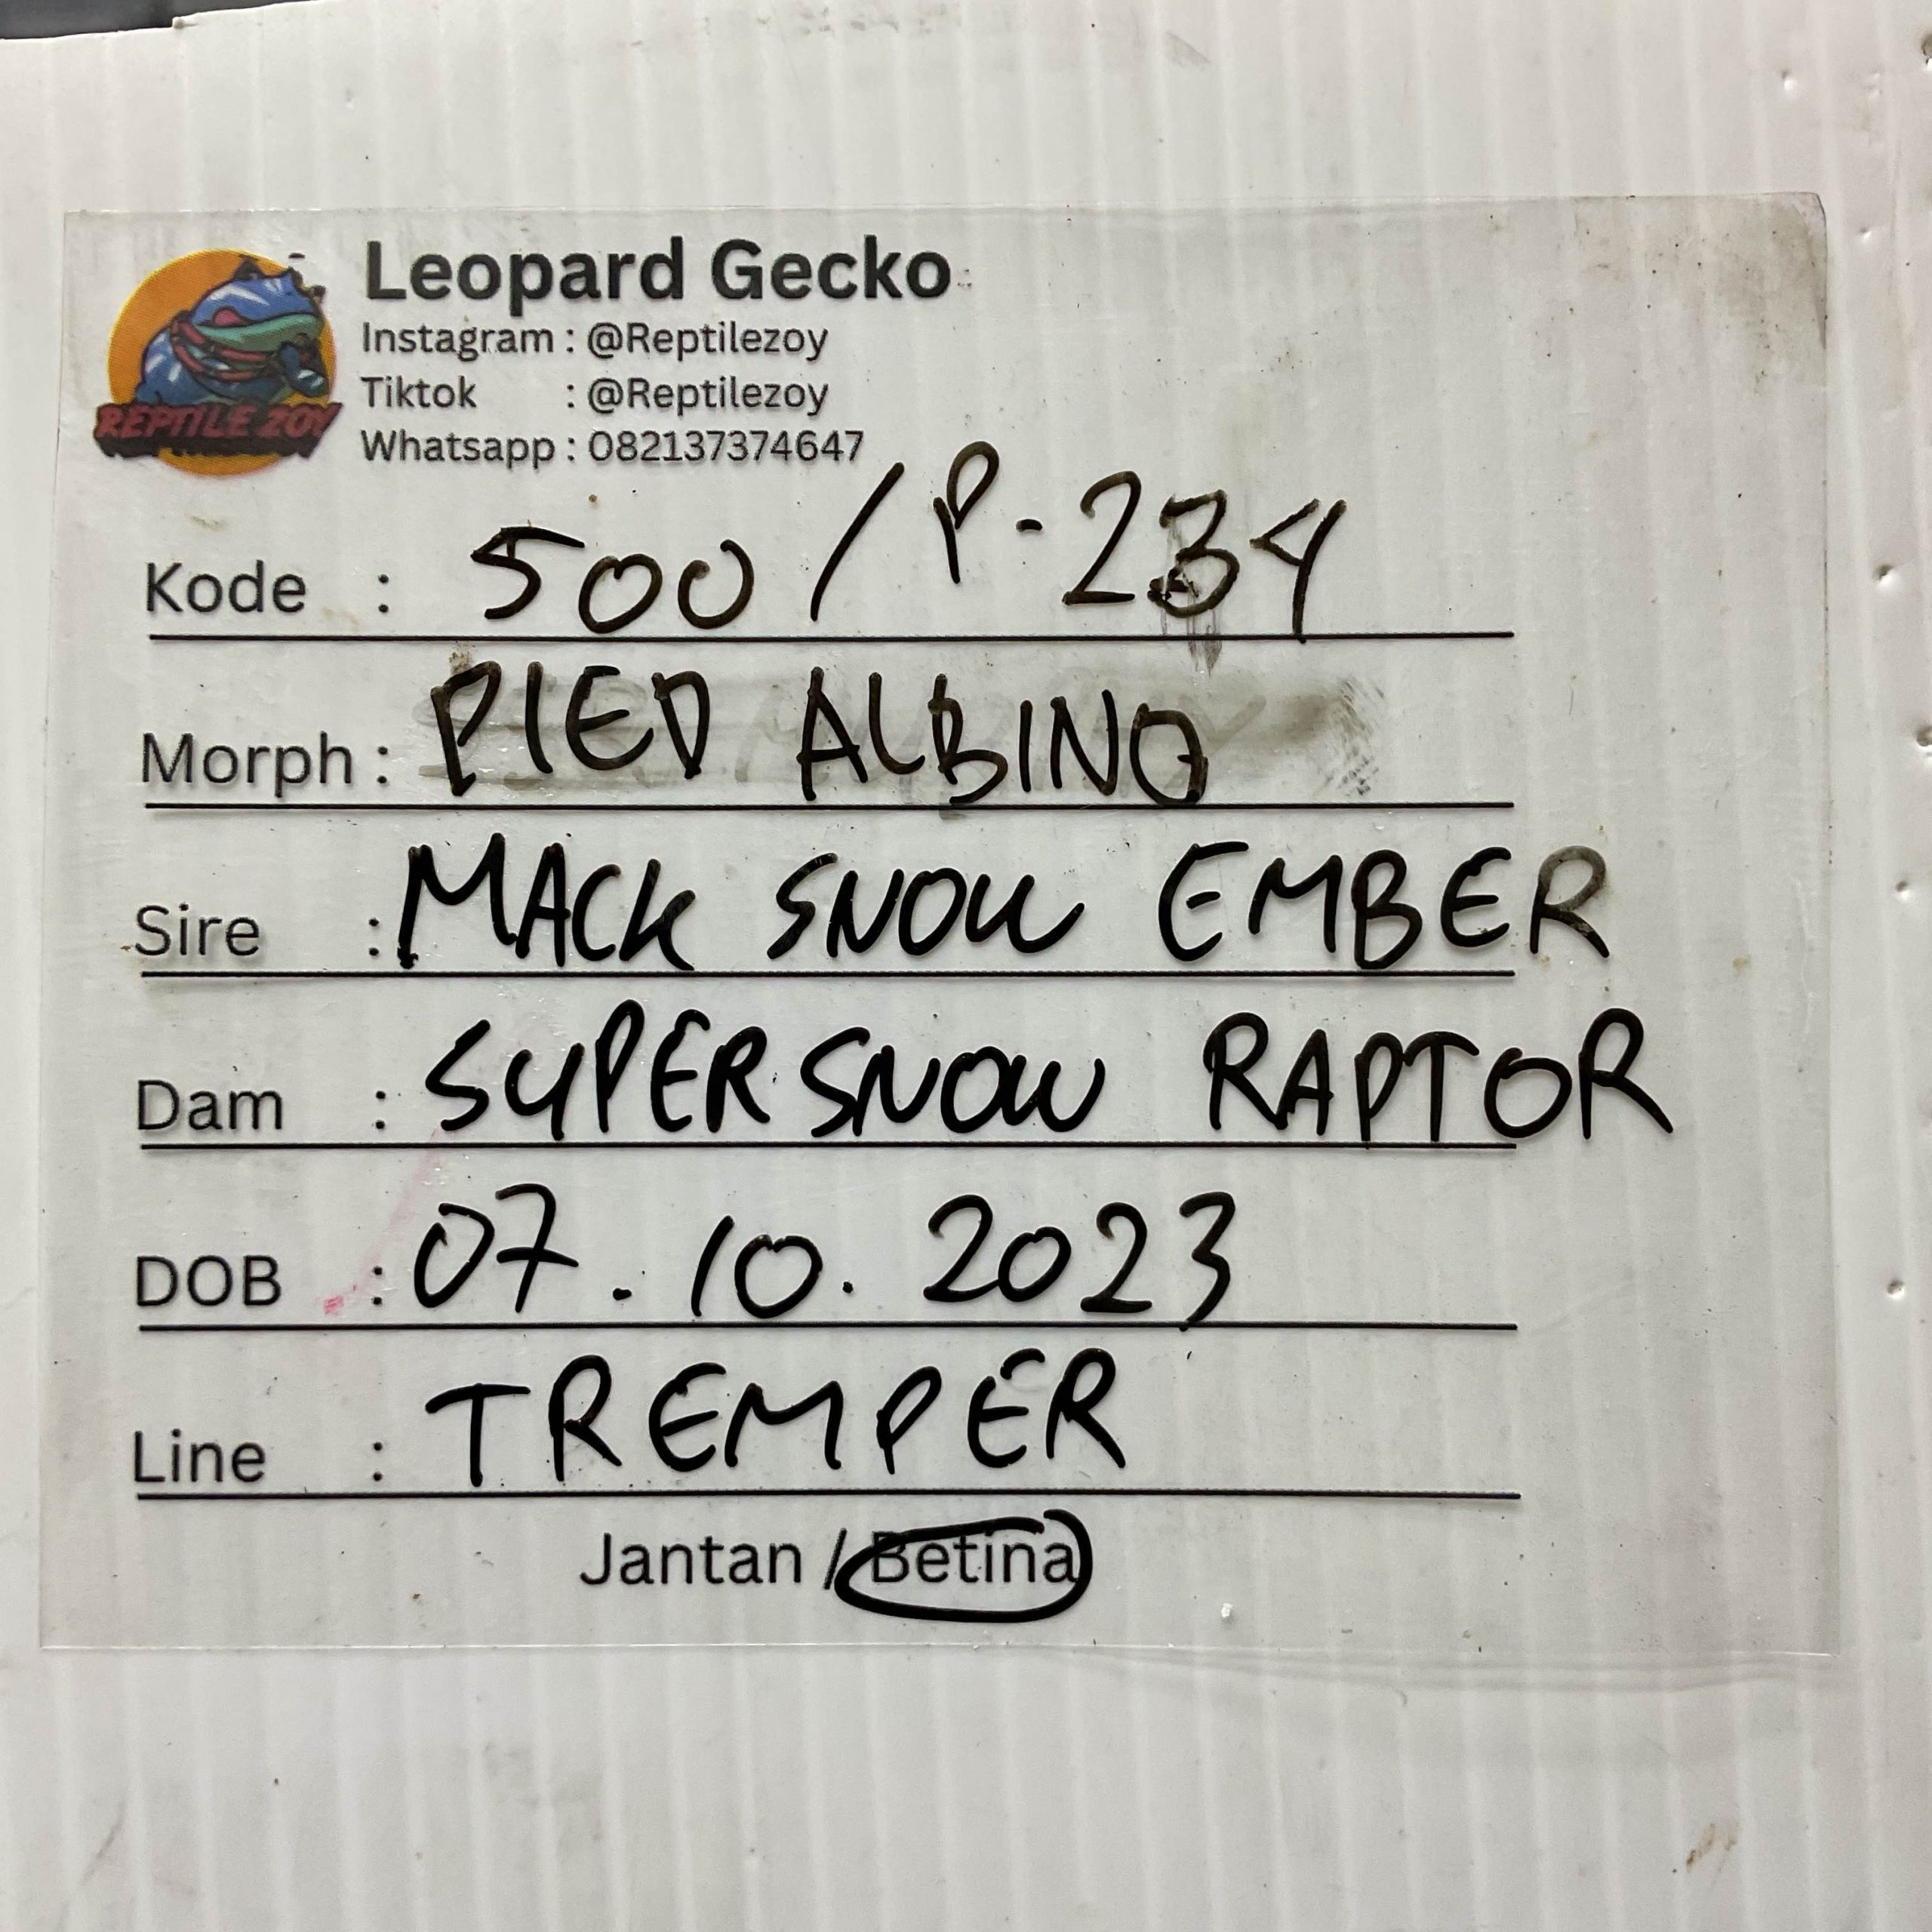 REPTILE ZOY
Leopard Gecko
Instagram : @Reptilezoy
Tiktok : @Reptilezoy
Whatsapp : 082137374647
Kode : 500 / P-234
Morph : PIED ALBINO
Sire : MACK SNOW EMBER
Dam : SUPER SNOW RAPTOR
DOB : 07.10.2023
Line : TREMPER
Jantan / Betina